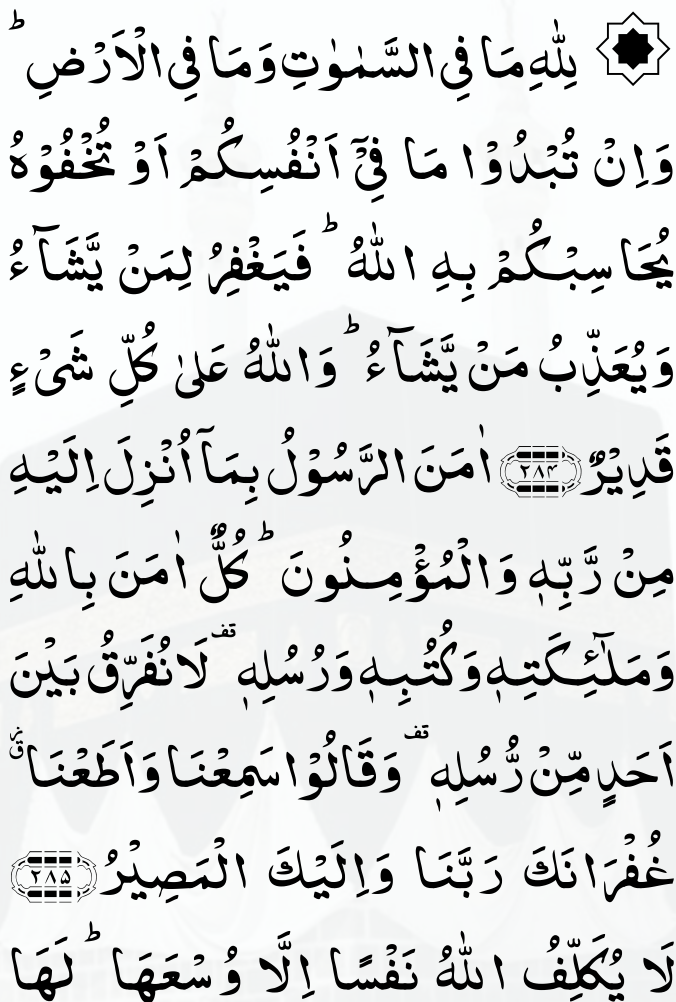 لِلّٰهِ مَا فِي السَّمٰوٰتِ وَمَا فِي الْاَرْضِ ؕ
وَاِنْ تُبْدُوْا مَا فِيْۤ اَنْفُسِكُمْ اَوْ تُخْفُوْهُ
يُحَاسِبْكُمْ بِهِ اللّٰهُ ؕ فَيَغْفِرُ لِمَنْ يَّشَآءُ
وَيُعَذِّبُ مَنْ يَّشَآءُ ؕ وَاللّٰهُ عَلٰى كُلِّ شَیْءٍ
قَدِيْرٌ ۲۸۴ اٰمَنَ الرَّسُوْلُ بِمَاۤ اُنْزِلَ اِلَيْهِ
مِنْ رَّبِّهٖ وَالْمُؤْمِنُوْنَ ؕ كُلٌّ اٰمَنَ بِاللّٰهِ
وَمَلٰٓئِكَتِهٖ وَكُتُبِهٖ وَرُسُلِهٖ قف لَا نُفَرِّقُ بَيْنَ
اَحَدٍ مِّنْ رُّسُلِهٖ قف وَقَالُوْا سَمِعْنَا وَاَطَعْنَا
غُفْرَانَكَ رَبَّنَا وَاِلَيْكَ الْمَصِيْرُ ۲۸۵
لَا يُكَلِّفُ اللّٰهُ نَفْسًا اِلَّا وُسْعَهَا ؕ لَهَا